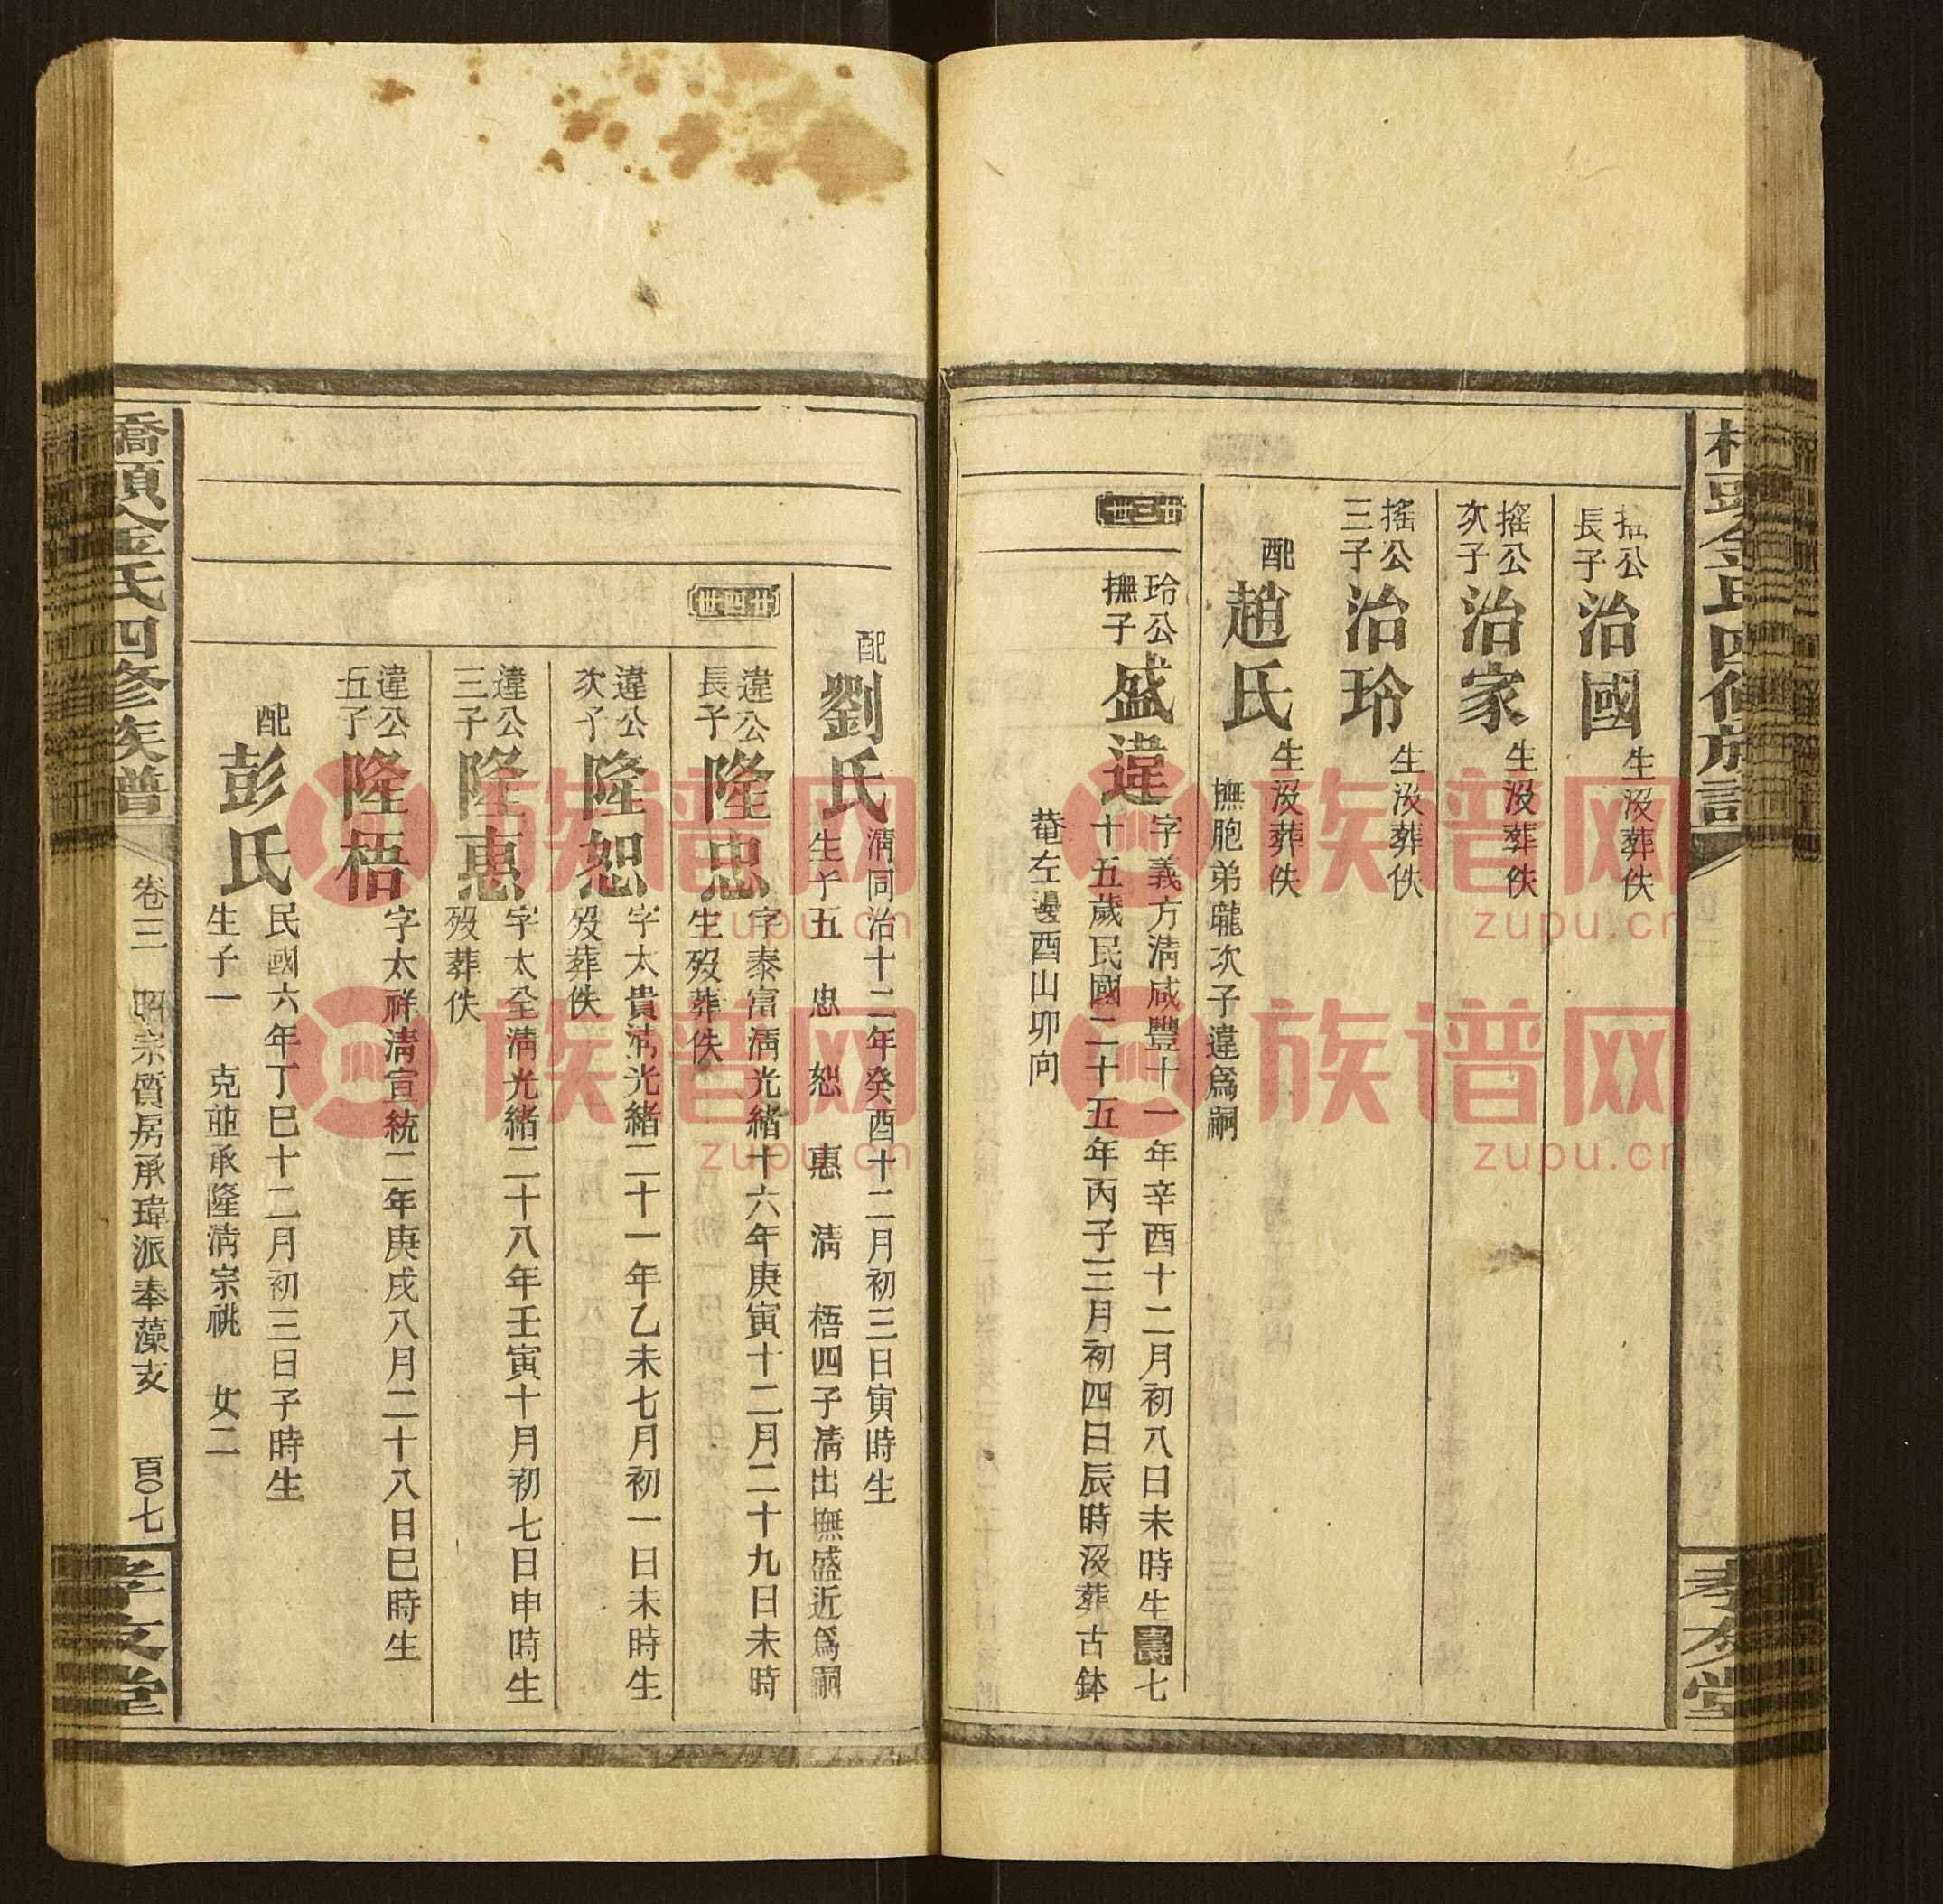 公
長子
治國
生沒葬佚
搖公
次子
治家
生沒葬佚
搖公
三子
治玲
生沒葬佚
配
趙氏
生沒葬佚
撫胞弟瓏次子違爲嗣
廿三世
玲公
撫子
盛違
字義方淸咸豐十一年辛酉十二月初八日未時生壽七
十五歲民國二十五年丙子三月初四日辰時沒葬古鉢
菴左邊酉山卯向
孝友堂
配
劉氏
淸同治十二年癸酉十二月初三日寅時生
生子五 忠 恕 惠 淸 梧四子淸出撫盛近爲嗣
廿四世
違公
長子
隆忠
字泰富淸光緒十六年庚寅十二月二十九日未時
生歿葬佚
違公
次子
隆恕
字太貴淸光緒二十一年乙未七月初一日未時生
歿葬佚
違公
三子
隆惠
字太全淸光緒二十八年壬寅十月初七日申時生
歿葬佚
違公
五子
隆梧
字太祥淸宣統二年庚戌八月二十八日巳時生
配
彭氏
民國六年丁巳十二月初三日子時生
生子一 克並承隆淸宗祧 女二
橋頭金氏四修族譜
卷三 昭宗質房承瑋派奉藻支 百〇七
孝友堂
族谱网
zupu.cn
族谱网
zupu.cn
族谱网
zupu.cn
族谱网
zupu.cn